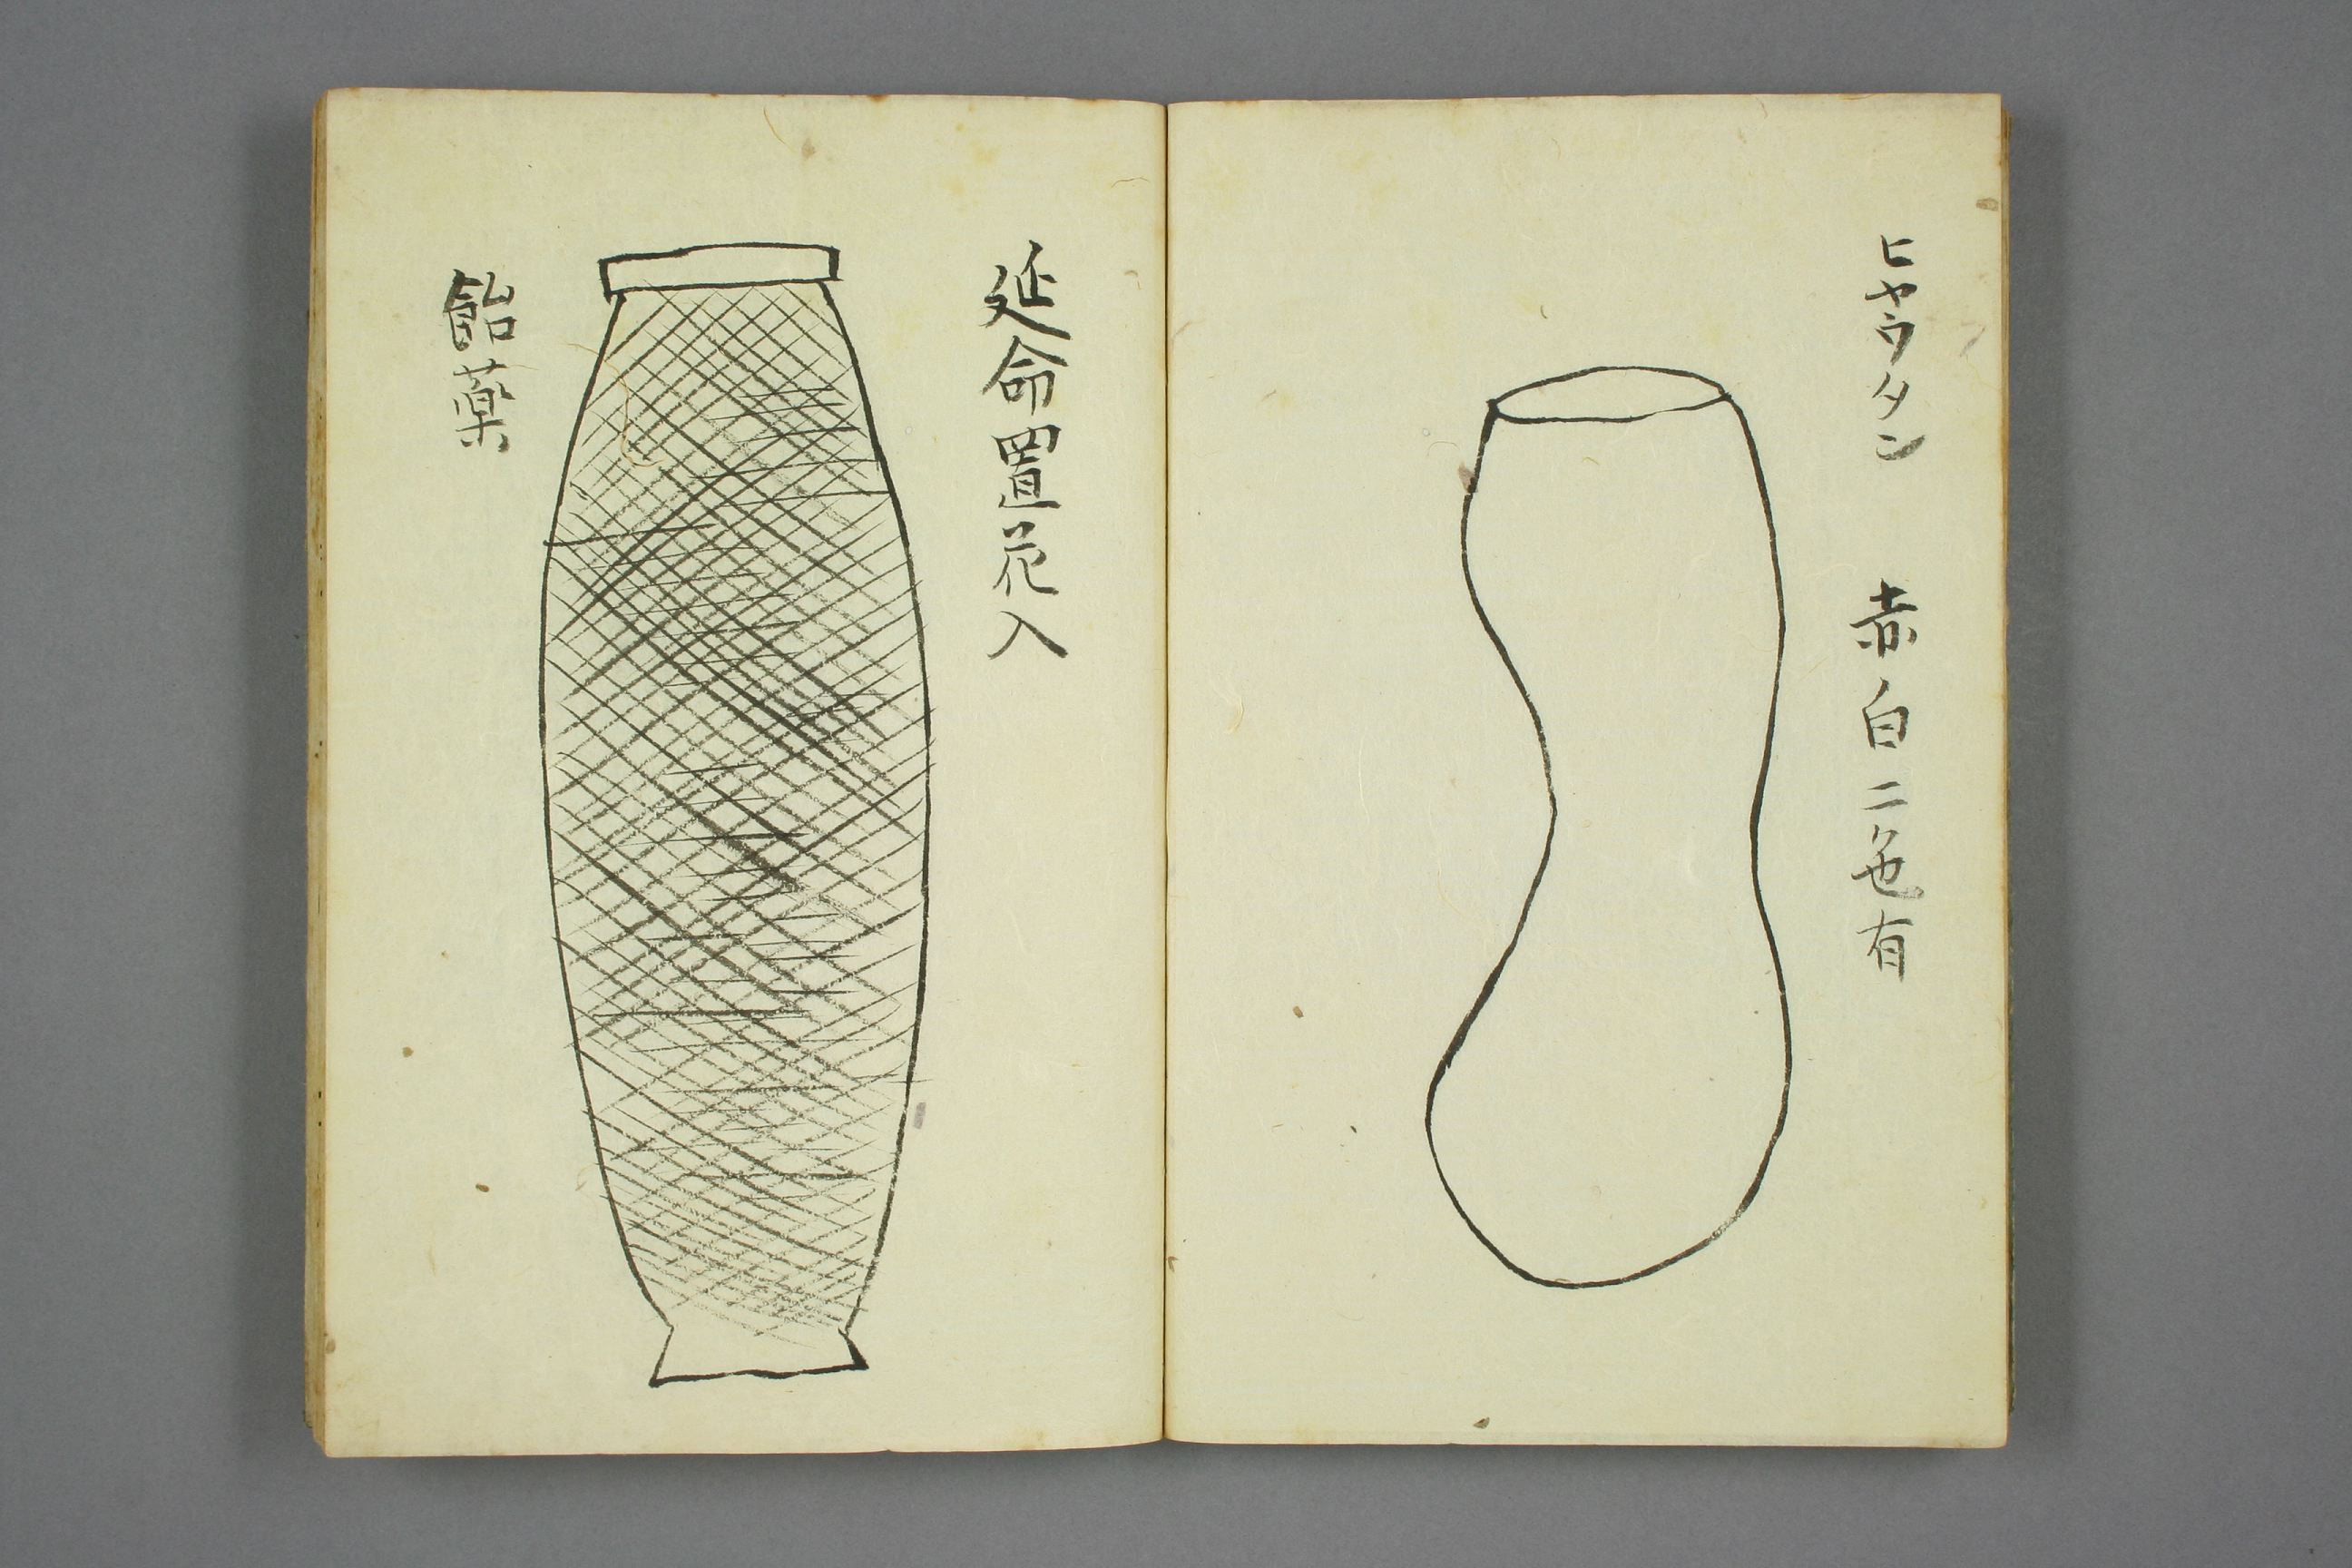 ヒヤウタン 赤白二色有
延命置花入
飴薬